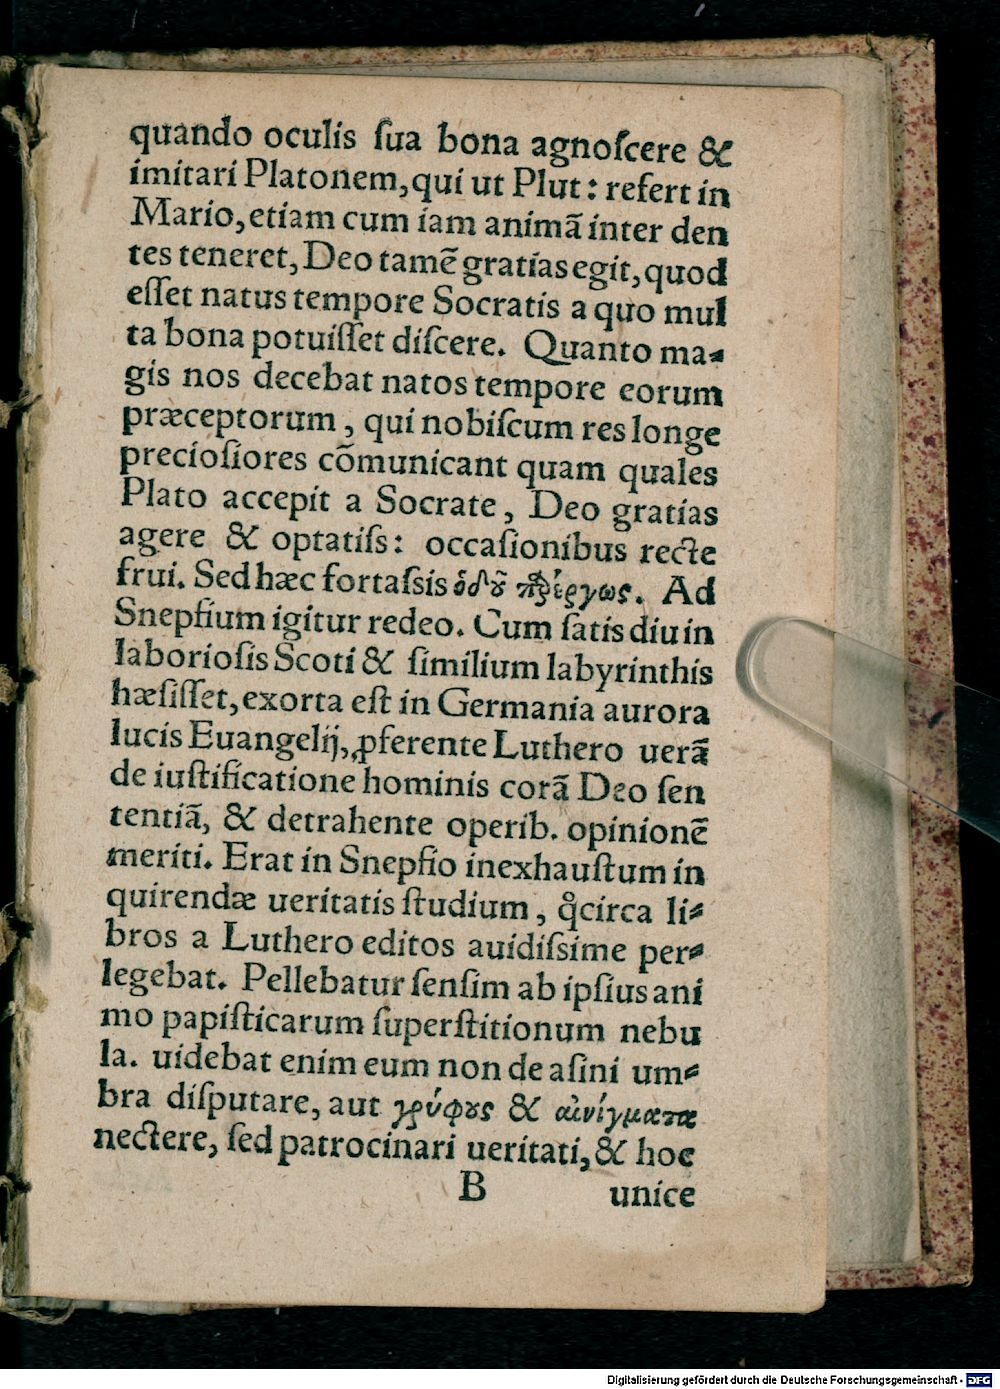 quando oculis ſua bona agnoſcere &
imitari Platonem, qui ut Plut: refert in
Mario, etiam cum iam animā inter den
tes teneret, Deo tamē gratias egit, quod
eſſet natus tempore Socratis a quo mul
ta bona potuiſſet diſcere. Quanto ma⸗
gis nos decebat natos tempore eorum
præceptorum, qui nobiſcum res longe
precioſiores cōmunicant quam quales
Plato accepit a Socrate, Deo gratias
agere & optatiſs: occaſionibus recte
frui. Sed hæc fortaſsis ὁδοῦ παρέργως. Ad
Snepfium igitur redeo. Cum ſatis diu in
laborioſis Scoti & ſimilium labyrinthis
hæſiſſet, exorta eſt in Germania aurora
lucis Euangelij, ꝓferente Luthero uerā
de iuſtificatione hominis corā Deo ſen
tentiā, & detrahente operib. opinionē
meriti. Erat in Snepfio inexhauſtum in
quirendæ ueritatis ſtudium, q̊circa li⸗
bros a Luthero editos auidiſsime per⸗
legebat. Pellebatur ſenſim ab ipſius ani
mo papiſticarum ſuperſtitionum nebu
la. uidebat enim eum non de aſini um⸗
bra diſputare, aut γρύφους & αἰνίγματα
nectere, ſed patrocinari ueritati, & hoc
B unice
Digitalisierung gefördert durch die Deutsche Forschungsgemeinschaft - DFG